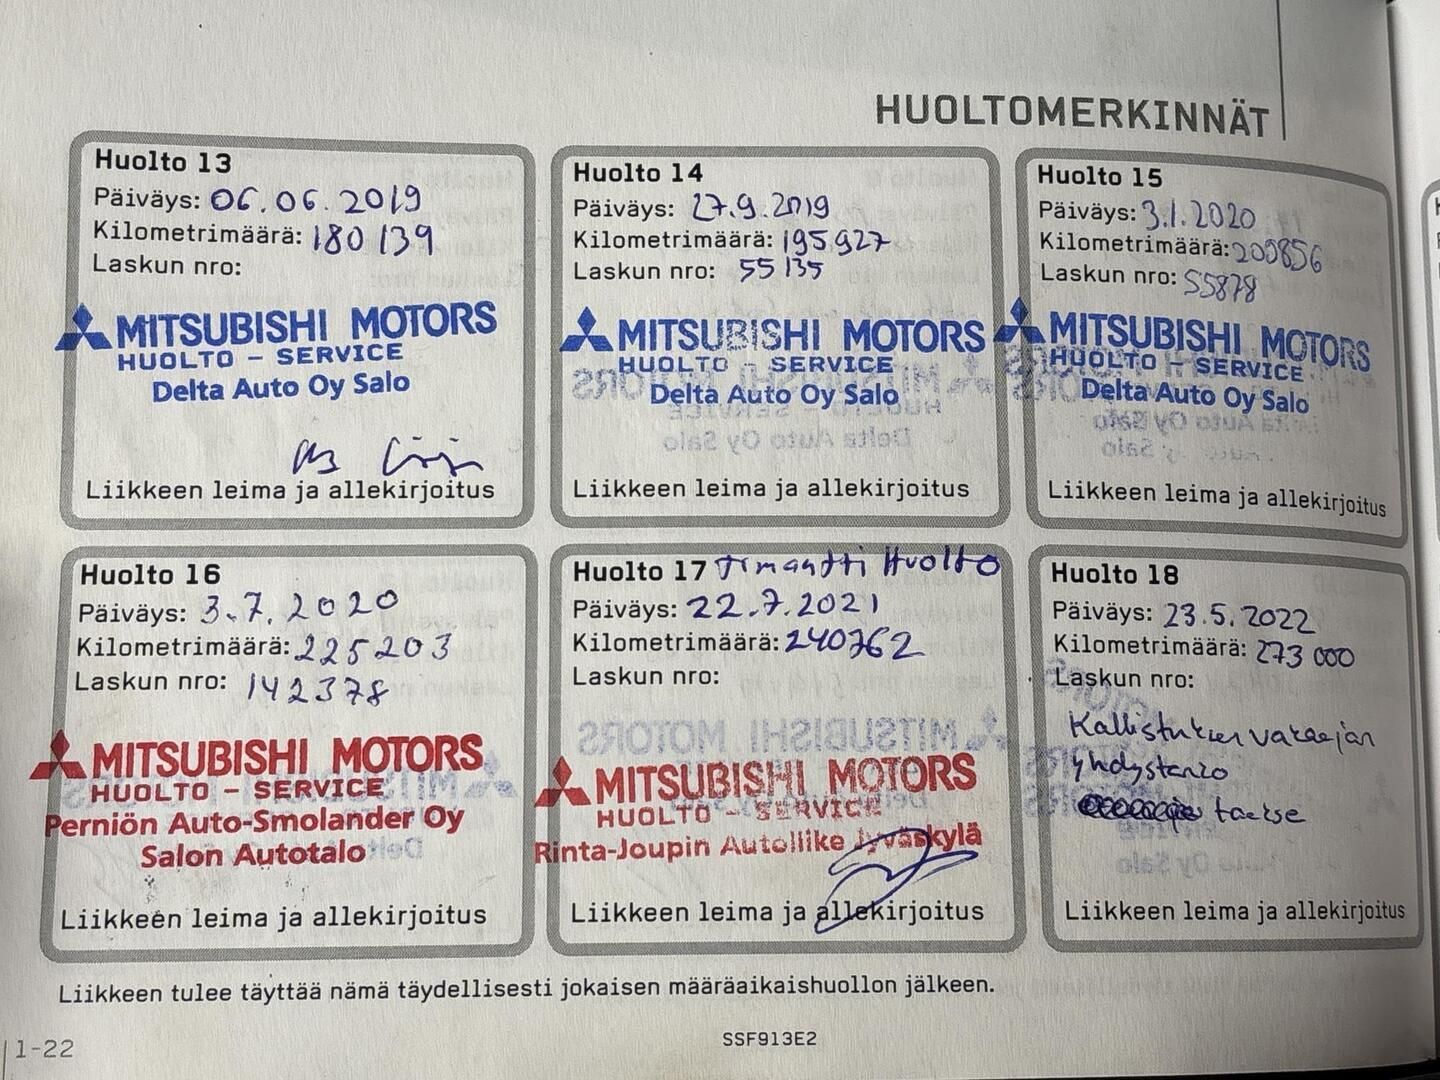 HUOLTOMERKINNÄT
Huolto 13
Päiväys: 06.06.2019
Kilometrimäärä: 180 139
Laskun nro:
MITSUBISHI MOTORS
HUOLTO - SERVICE
Delta Auto Oy Salo
Liikkeen leima ja allekirjoitus
Huolto 14
Päiväys: 27.9.2019
Kilometrimäärä: 195927
Laskun nro: 55135
MITSUBISHI MOTORS
HUOLTO - SERVICE
Delta Auto Oy Salo
Liikkeen leima ja allekirjoitus
Huolto 15
Päiväys: 3.1.2020
Kilometrimäärä: 209856
Laskun nro: 55878
MITSUBISHI MOTORS
HUOLTO - SERVICE
Delta Auto Oy Salo
Liikkeen leima ja allekirjoitus
Huolto 16
Päiväys: 3.7.2020
Kilometrimäärä: 225203
Laskun nro: 142378
MITSUBISHI MOTORS
HUOLTO - SERVICE
Perniön Auto-Smolander Oy
Salon Autotalo
Liikkeen leima ja allekirjoitus
Huolto 17 Timantti Huolto
Päiväys: 22.7.2021
Kilometrimäärä: 240762
Laskun nro:
MITSUBISHI MOTORS
HUOLTO - SERVICE
Rinta-Joupin Autoliike Jyväskylä
Liikkeen leima ja allekirjoitus
Huolto 18
Päiväys: 23.5.2022
Kilometrimäärä: 273 000
Laskun nro:
Kallistuksenvakaajan
yhdystanko
taakse
Liikkeen leima ja allekirjoitus
Liikkeen tulee täyttää nämä täydellisesti jokaisen määräaikaishuollon jälkeen.
1-22
SSF913E2